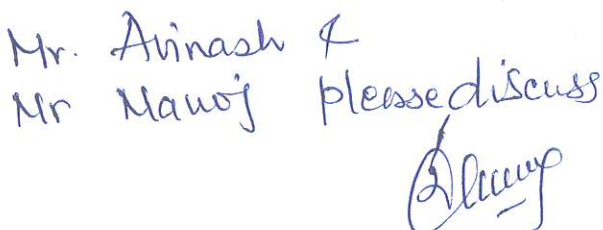 Mr. Avinash &
Mr Manoj pleasse discuss